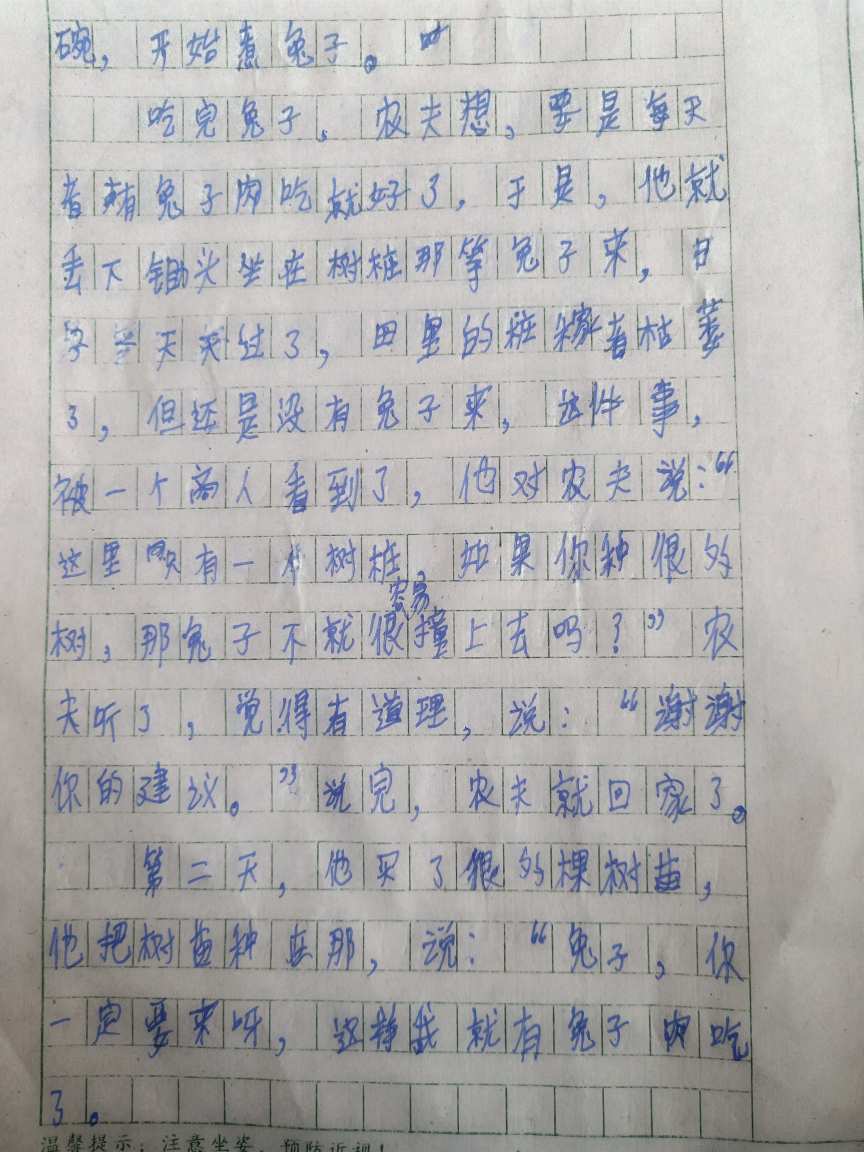 碗，开始煮兔子。
吃完兔子，农夫想，要是每天
都有兔子肉吃就好了，于是，他就
丢下锄头坐在树桩那等兔子来，日
子一天天过了，田里的桩稼都枯萎
了，但还是没有兔子来，这件事，
被一个商人看到了，他对农夫说：“
这里只有一个树桩，如果你种很多
树，那兔子不就很容易撞上去吗？”农
夫听了，觉得有道理，说：“谢谢
你的建议。”说完，农夫就回家了。
第二天，他买了很多棵树苗，
他把树苗种在那，说：“兔子，你
一定要来呀，这样我就有兔子肉吃
了。
温馨提示：注意坐姿，预防近视！